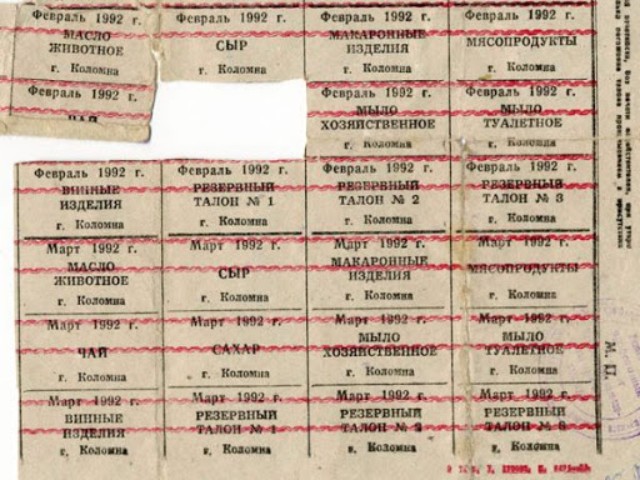 Февраль 1992 г. Февраль 1992 г. Февраль 1992 г. Февраль 1992 г.
МАСЛО ЖИВОТНОЕ СЫР МАКАРОННЫЕ ИЗДЕЛИЯ МЯСОПРОДУКТЫ
г. Коломна г. Коломна г. Коломна г. Коломна
Февраль 1992 г. Февраль 1992 г. Февраль 1992 г.
ЧАЙ МЫЛО ХОЗЯЙСТВЕННОЕ МЫЛО ТУАЛЕТНОЕ
г. Коломна г. Коломна
Февраль 1992 г. Февраль 1992 г. Февраль 1992 г. Февраль 1992 г.
ВИННЫЕ ИЗДЕЛИЯ РЕЗЕРВНЫЙ ТАЛОН № 1 РЕЗЕРВНЫЙ ТАЛОН № 2 РЕЗЕРВНЫЙ ТАЛОН № 3
г. Коломна г. Коломна г. Коломна г. Коломна
Март 1992 г. Март 1992 г. Март 1992 г. Март 1992 г.
МАСЛО ЖИВОТНОЕ СЫР МАКАРОННЫЕ ИЗДЕЛИЯ МЯСОПРОДУКТЫ
г. Коломна г. Коломна г. Коломна г. Коломна
Март 1992 г. Март 1992 г. Март 1992 г. Март 1992 г.
ЧАЙ САХАР МЫЛО ХОЗЯЙСТВЕННОЕ МЫЛО ТУАЛЕТНОЕ
г. Коломна г. Коломна г. Коломна г. Коломна
Март 1992 г. Март 1992 г. Март 1992 г. Март 1992 г.
ВИННЫЕ ИЗДЕЛИЯ РЕЗЕРВНЫЙ ТАЛОН № 1 РЕЗЕРВНЫЙ ТАЛОН № 2 РЕЗЕРВНЫЙ ТАЛОН № 3
г. Коломна г. Коломна г. Коломна г. Коломна
М. П.